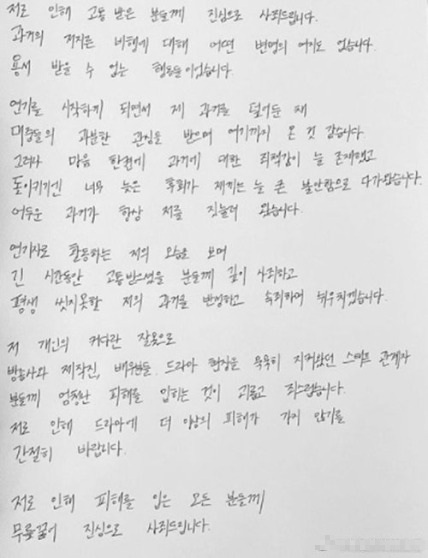 저로 인해 고통 받은 분들께 진심으로 사죄드립니다.
과거의 저지른 비행에 대해 어떤 변명의 여지도 없습니다.
용서 받을 수 없는 행동들이었습니다.
연기를 시작하게 되면서 제 과거를 덮어둔 채
대중들의 과분한 관심을 받으며 여기까지 온 것 같습니다.
그러나 마음 한편에 과거에 대한 죄책감이 늘 존재했고
돌이키기엔 너무 늦은 후회가 저에게는 늘 큰 불안함으로 다가왔습니다.
어두운 과거가 항상 저를 짓눌러 왔습니다.
연기자로 활동하는 저의 모습을 보며
긴 시간동안 고통받으셨을 분들께 깊이 사죄하고
평생 씻지못할 저의 과거를 반성하고 속죄하며 쳐우치겠습니다.
저 개인의 커다란 잘못으로
방송사와 제작진, 배우분들, 드라마 현장을 묵묵히 지켜왔던 스태프 관계자
분들께 엄청난 피해를 입히는 것이 괴롭고 죄스럽습니다.
저로 인해 드라마에 더 이상의 피해가 가지 않기를
간절히 바랍니다.
저로 인해 피해를 입은 모든 분들께
무릎꿇어 진심으로 사죄드립니다.